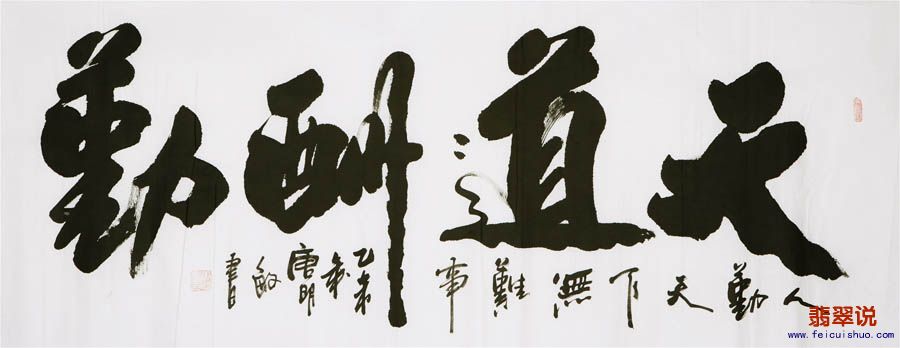 天道酬勤
人勤天下無難事
乙未年唐明敏書
翡翠说
www.feicuishuo.com